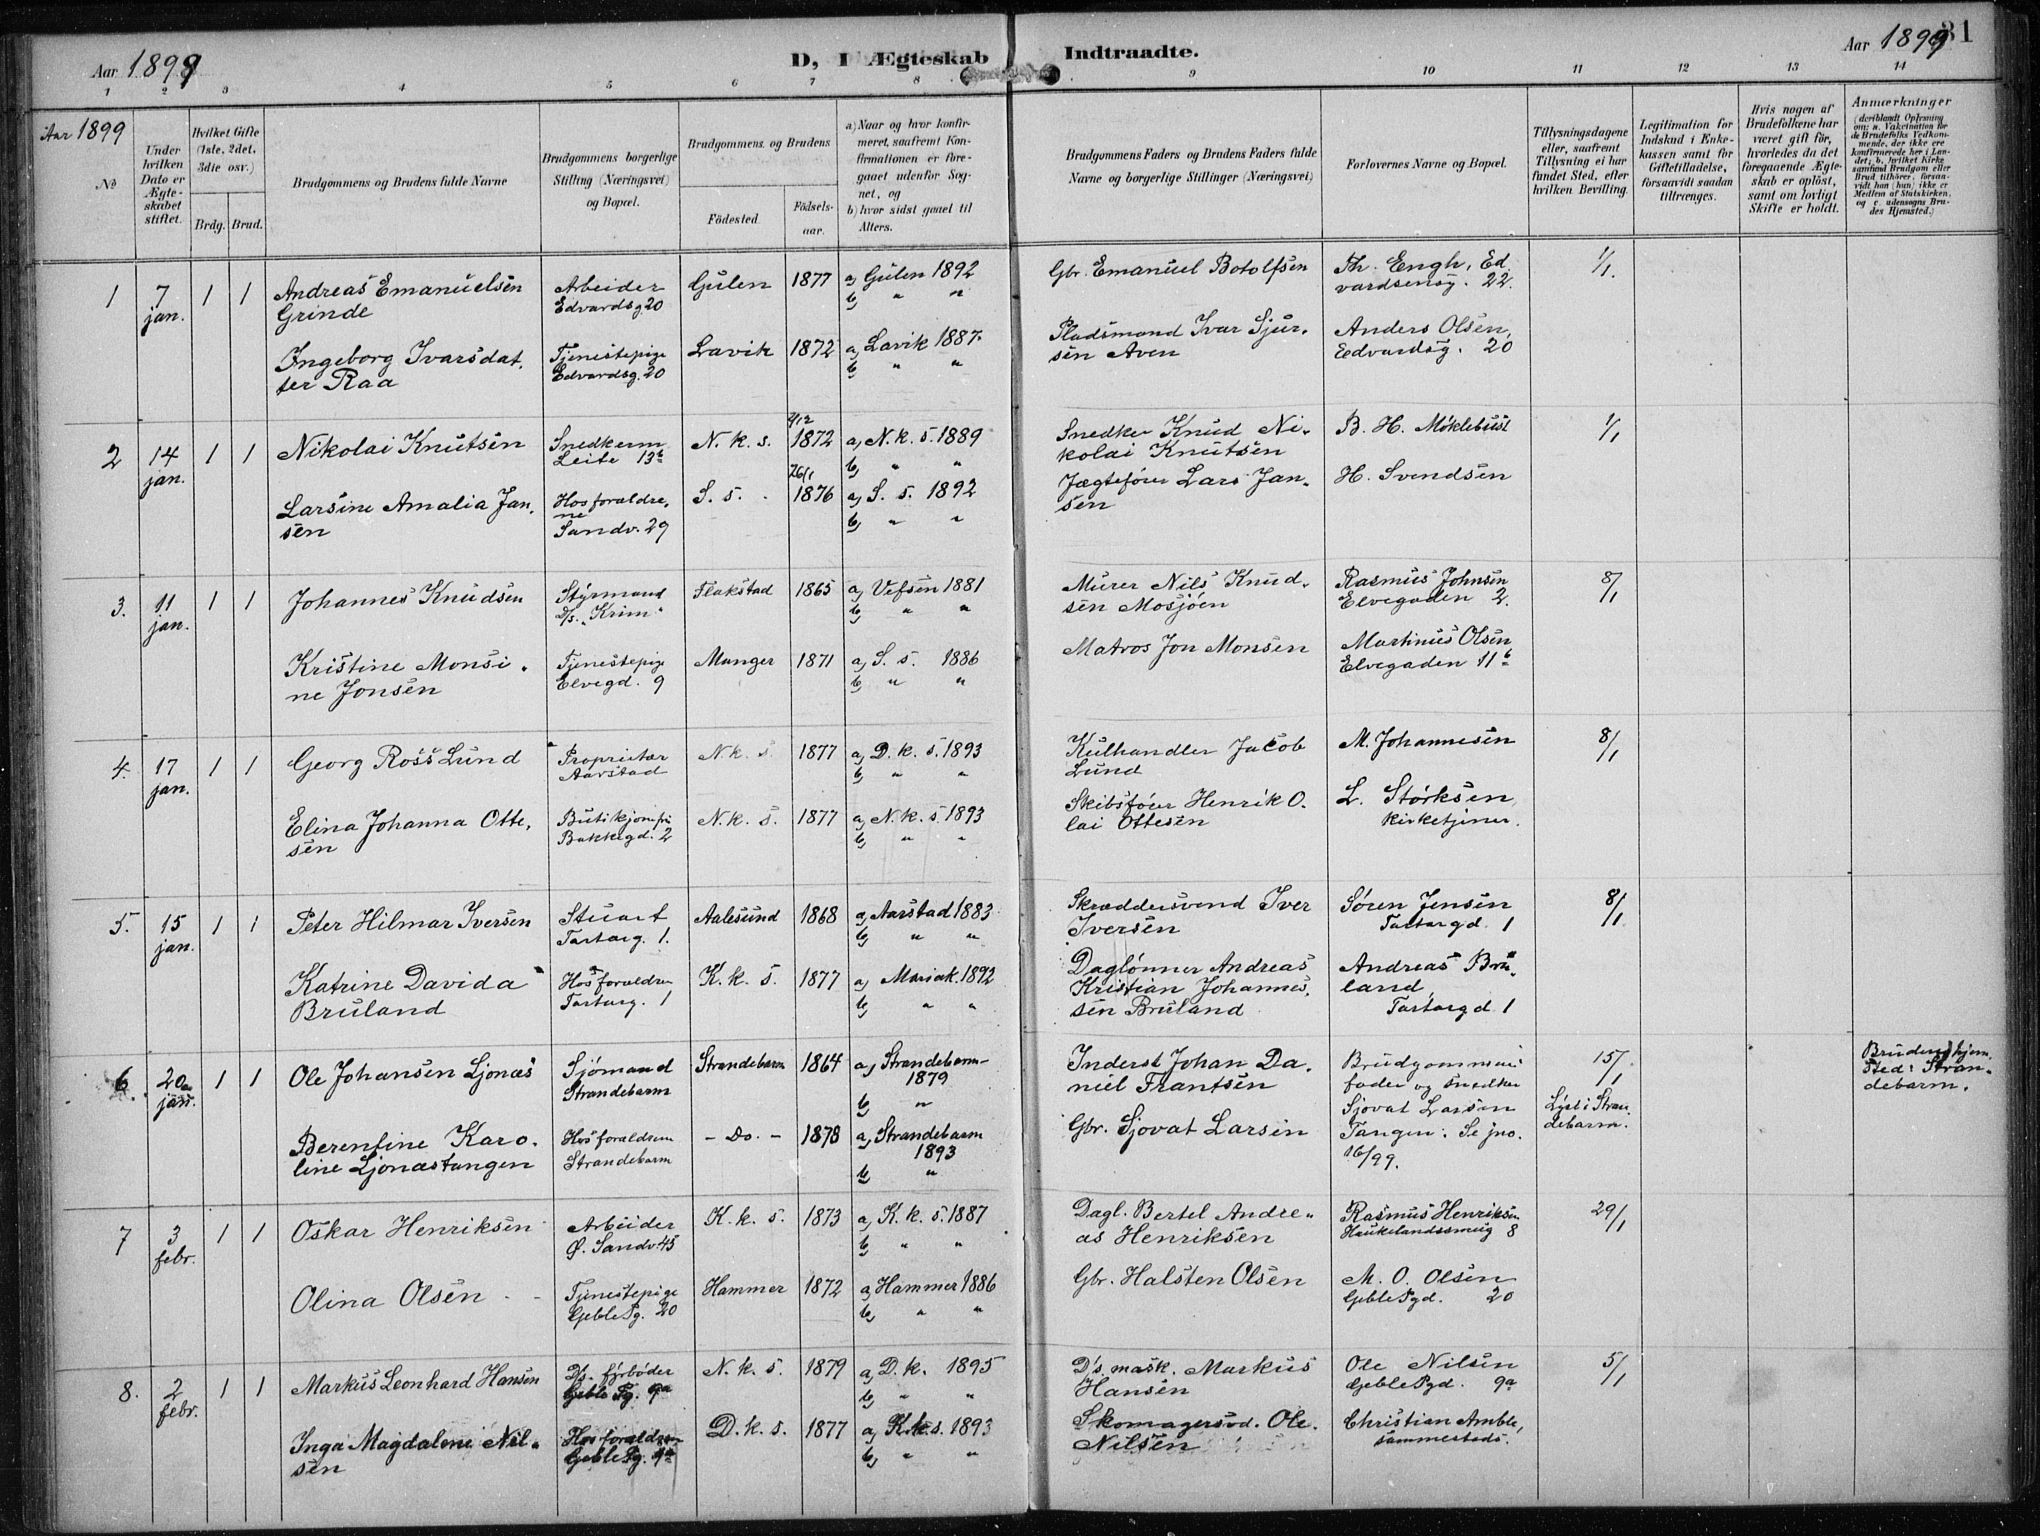 Aar 1899
D, I Ægteskab Indtraadte.
Aar 1899
31
1 2 3 4 5 6 7 8 9 10 11 12 13 14
Aar 1899
No
Under
hvilken
Dato er
Ægte-
skabet
stiftet.
Hvilket Gifte
(1ste, 2det,
3die osv.)
Brdg. Brud.
Brudgommens og Brudens fulde Navne
Brudgommens borgerlige
Stilling (Næringsvei)
og Bopæl.
Brudgommens og Brudens
Födested.
Födsels-
aar.
a) Naar og hvor konfir-
meret, saafremt Kon-
firmationen er fore-
gaaet udenfor Sog-
net, og
b) hvor sidst gaaet til
Alters.
Brudgommens Faders og Brudens Faders fulde
Navne og borgerlige Stillinger (Næringsvei)
Forlovernes Navne og Bopæl.
Tillysningsdagene
eller, saafremt
Tillysning ei har
fundet Sted, efter
hvilken Bevilling.
Legitimation for
Indskud i Enke-
kassen samt for
Giftetilladelse,
forsaavidt saadan
tiltrænges.
Hvis nogen af
Brudefolkene har
været gift för,
hvorledes da det
foregaaende Ægte-
skab er oplöst,
samt om lovligt
Skifte er holdt.
Anmærkninger
(deriblandt Oplysning
om: a. Vakcination for
de Brudefolks Vedkom-
mende, der ikke ere
konfirmerede her i Lan-
det; b. hvilket Kirke
samfund Brudgom eller
Brud tilhörer, forsaa-
vidt han (hun) ikke er
Medlem af Statskirken,
og c. udensogns Bru-
des Hjemsted.)
1 7 jan. 1 1
Andreas Emanuelsen
Grinde
Arbeider
Edvardsg. 20
Gulen 1877
a) Gulen 1892
b) " "
Gbr. Emanuel Botolfsen
Th. Engh, Ed
vardsensg. 22.
1/1
Ingeborg Ivarsdat,
ter Raa
Tjenestepige
Edvardsg. 20
Lavik 1872
a) Lavik 1887.
b) " "
Pladsmand Ivar Sjur,
sen Aven
Anders Olsen,
Edvardsg. 20
2 14 jan. 1 1
Nikolai Knutsen
Snedkerm
Leite 13b
N. k. s. 1872
a) N. k. s. 1889
b) " "
Snedker Knud Ni-
kolai Knutsen
B. H. Möklebust
1/1
Larsine Amalia Jan,
sen
Hos forældre,
ne
Sandv. 29
S. s. 26/1 1876
a) S. s. 1892
b) " "
Jægtefører Lars Jan,
sen
H. Svendsen
3. 11 jan. 1 1
Johannes Knudsen
Styrmand
D/s. "Krim"
Flakstad 1865
a) Vefsen 1881
b) " "
Murer Nils Knud,
sen Mosjöen
Rasmus Johnsen
Elvegaden 2.
8/1
Kristine Monsi,
ne Jonsen
Tjenestepig
Elvegd. 9
Manger 1871
a) S. s. 1886
b) " "
Matros Jon Monsen
Martinus Olsen
Elvegaden 11b
4. 17 jan. 1 1
Georg Ross Lund
Proprietær
Aarstad
N. k. s. 1877
a) D. k. s. 1893
b) " "
Kulhandler Jacob
Lund
M. Johannesen
8/1
Elina Johanna Otte,
sen
Butikjomfr
Bakkegd. 2
N. k. s. 1877
a) N. k. s. 1893
b) " "
Skibsfører Henrik O.
lai Ottesen
L. Störksen,
kirketjener.
5. 15 jan. 1 1
Peter Hilmar Iversen
Stuart
Tartarg. 1.
Aalesund 1868
a) Aarstad 1883
b) " "
Skræddersvend Iver
Iversen
Sören Jensen
Tartargd. 1
8/1
Katrine Davida
Bruland
Hos forældren
Tartarg. 1
K. k. s. 1877
a) Mariak. 1892
b) " "
Daglönner Andreas
Kristian Johannes,
sen Bruland
Andreas Bru,
land,
Tartargd. 1
6. 20 jan. 1 1
Ole Johansen Ljonæs
Sjömand
Strandebarm
Strandebarm 1864
a) Strandebarm
1879
b) "
Inderst Johan Da,
niel Frantsen
Brudgommens
fader og
15/1
Lyst i Stran,
debarm.
Brudens hjem,
sted: Stran,
debarm.
Berentine Karo,
line Ljonæstangen
Hos forældrene
Strandebarm
- Do. - 1878
a) Strandebarm
1893
b) "
Gbr. Sjovat Larsen
Sjovat Larsen
Tangen. Se jno.
16/99.
7 3 febr. 1 1
Oskar Henriksen
Arbeider
Ø. Sandv 45
K. k. s. 1873
a) K. k. s. 1887
b) " "
Dagl. Bertel Andre,
as Henriksen
Rasmus Henriksen
Haukelandssmug 8
29/1
Olina Olsen
Tjenestepige
Geble Pg. 20
Hammer 1872
a) Hammer 1886
b) " "
Gbr. Halsten Olsen
M. O. Olsen
Geble Pgd. 20
8. 2 febr. 1 1
Markus Leonhard Hansen
D/s. fyrböder
Geble Pg. 9a
N. k. s. 1879
a) D. k. 1895
b) " "
D/s. mask. Markus
Hansen
Ole Nilsen
Geble Pgd. 9a
5/1
Inga Magdalene Nil,
sen
Hos forældren
Geble Pg. 9a
D. k. s. 1877
a) K. k. s. 1893
b) " "
Skomagersvd. Ole
Nilsen
Christian Amble,
sammesteds.